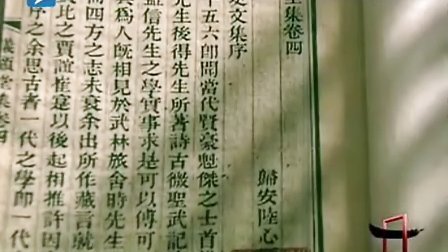 全集卷四
文集序
歸安陸心
十五六郎聞當代賢豪魁傑之士首
先生後得先生所著詩古微聖武記
益信先生之學實事求是可以傳可
其爲人既相見於武林旅舍時先生
周四方之志未衰余出所作藏言就
我比之賈誼崔寔以後起相推許因
序之余思古者一代之學師一代
儀顧堂集卷四